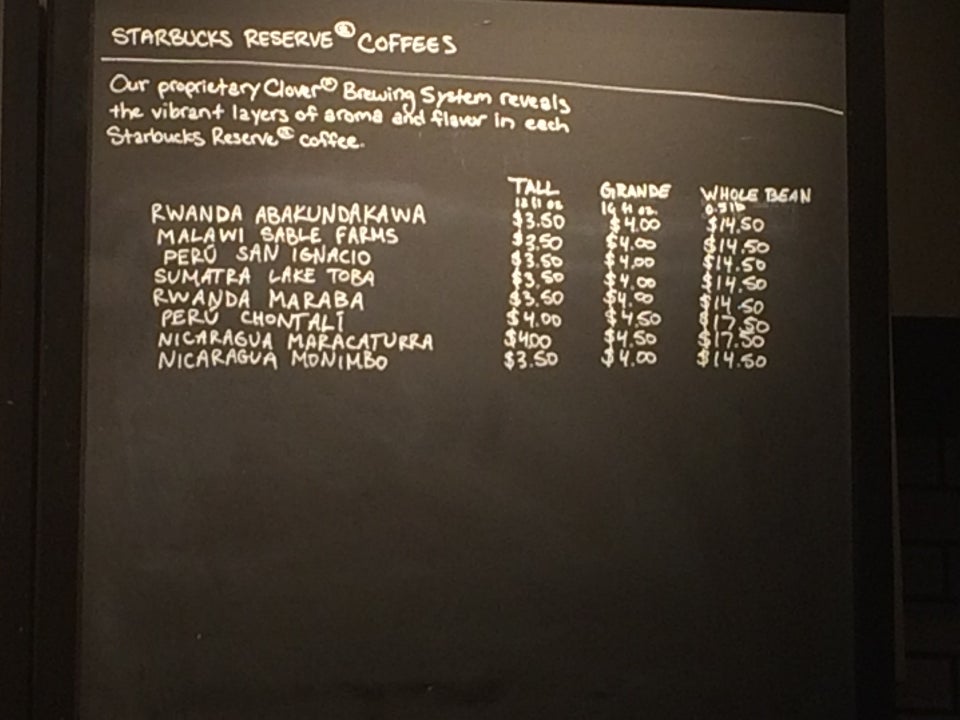 STARBUCKS RESERVE® COFFEES
Our proprietary Clover® Brewing System reveals
the vibrant layers of aroma and flavor in each
Starbucks Reserve® coffee.
TALL GRANDE WHOLE BEAN
12 fl oz 16 fl oz 0.5 lb
RWANDA ABAKUNDAKAWA $3.50 $4.00 $14.50
MALAWI SABLE FARMS $3.50 $4.00 $14.50
PERÚ SAN IGNACIO $3.50 $4.00 $14.50
SUMATRA LAKE TOBA $3.50 $4.00 $14.50
RWANDA MARABA $3.50 $4.00 $14.50
PERÚ CHONTALÍ $4.00 $4.50 $17.50
NICARAGUA MARACATURRA $4.00 $4.50 $17.50
NICARAGUA MONIMBO $3.50 $4.00 $14.50